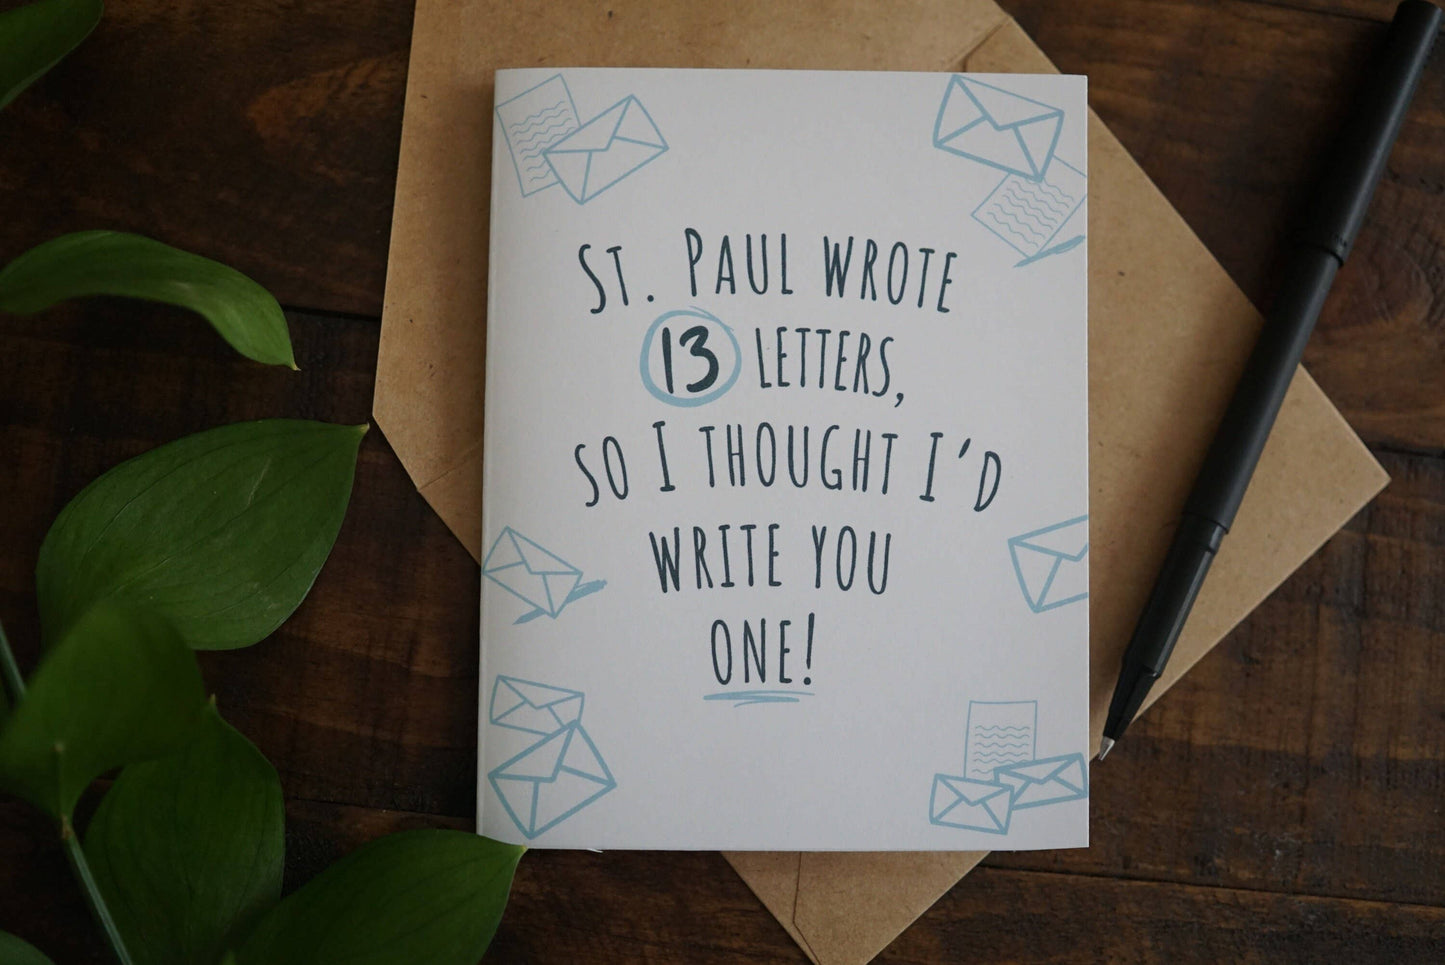 ST. PAUL WROTE
13 LETTERS,
SO I THOUGHT I'D
WRITE YOU
ONE!